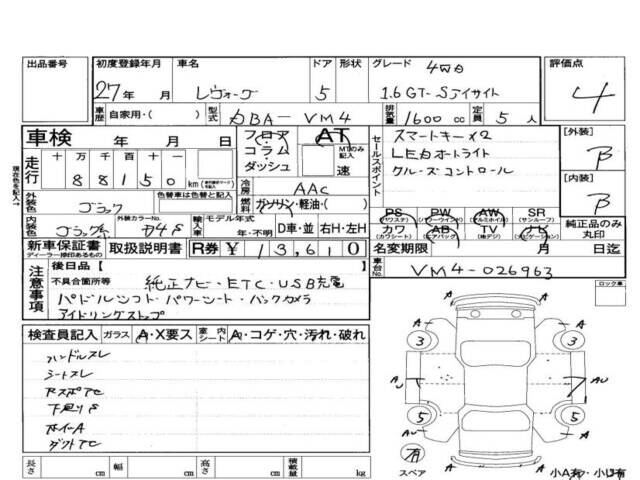 出品番号 初度登録年月 車名 ドア 形状 グレード 評価点
4WD
27年 月 レヴォーグ 5 1.6GT-Sアイサイト 4
車歴 自家用・( ) 型式 DBA-VM4 排気量 1600cc 定員 5人
車検 年 月 日 フロア・コラム・ダッシュ AT MTのみ記入 速
走行 十 万 千 百 十 一
88150 km
現在色を記入↑
冷房 AAC
燃料 ガソリン・軽油・( )
外装色 ブラック 色替車は色替と記入
内装色 ブラック 外装カラーNo. D4S
輸入車 モデル年式 年・不明 D車・並 右H・左H
新車保証書 ディーラー捺印あるもの 取扱説明書 R券 ¥13,610
セールスポイント
スマートキー×2
LEDオートライト
クルーズコントロール
PS (パワステ) PW (パワーウインド) AW (アルミホイル) SR (サンルーフ)
カワ (カワシート) AB (エアバック) TV (地デジ) ナビ (ナビゲーション)
純正品のみ丸印
[外装] B
[内装] B
名変期限 月 日迄
車台No. VM4-026963
注意事項
後日品 [ ]
不具合箇所等 純正ナビ・ETC・USB充電
パドルシフト・パワーシート・バックカメラ
アイドリングストップ
検査員記入 ガラス A・X要ス 室内シート A・コゲ・穴・汚れ・破れ
ハンドルスレ
シートスレ
下廻りS
ホイールA
ロック車
A A
3 3
A AU
5 5
AU A
有
スペア A A
小A有・小U有
長さ cm 幅 cm 高さ cm 積載量 kg